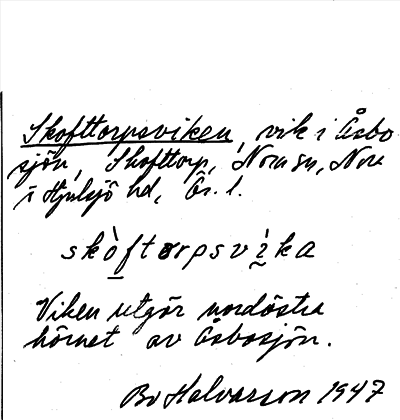 Skofttorpsviken, vik i Åsbo
sjön, Skofttorp, Nora sn, Nora
i Hjulsjö hd, Ör. l.
skòftorpsvìka
Viken utgör nordöstra
hörnet av Åsbosjön.
Bo Halvarsson 1947